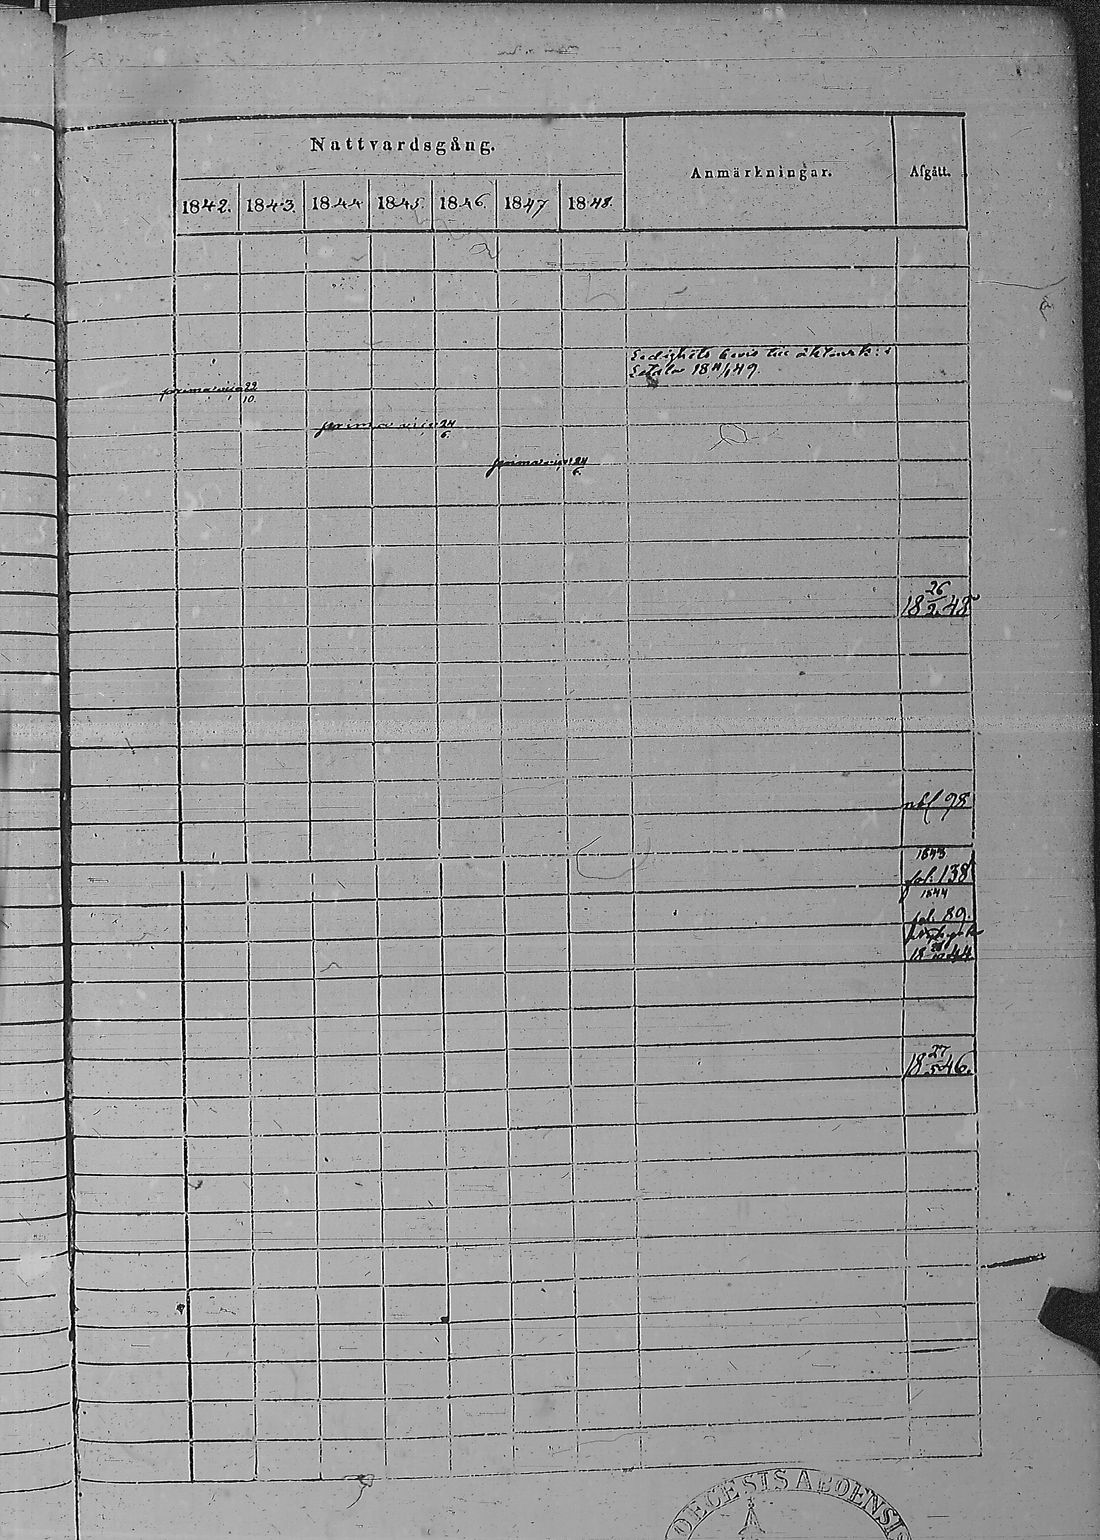 Nattvardsgång.
Anmärkningar.
Afgått.
1842. 1843. 1844 1845. 1846. 1847 1848.
Ledighets bevis till äktensk: i
18 11/1 49.
prima vice 22/10.
prima vice 24/6.
prima vice 24/6.
18 26/2 48
98
1843
fol. 138
1844
fol. 89.
18 44
18 27/5 46.
OECESIS ABOENSIS